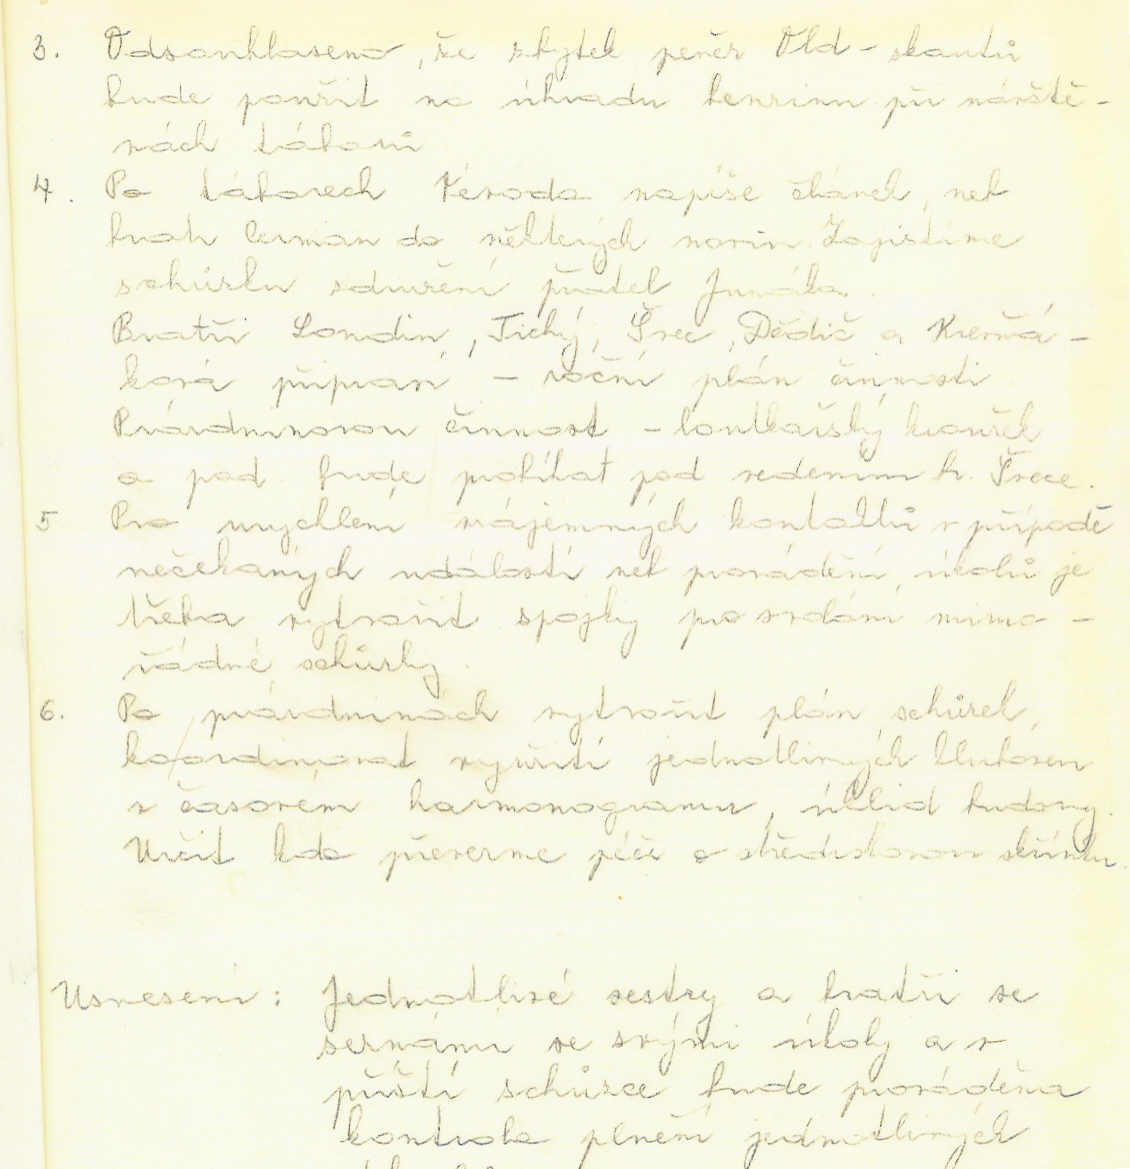 3. Odsouhlaseno, že zbytek peněz Old-skautů
bude použit na úhradu benzinu při návště-
vách táborů
4. Po táborech Vévoda napíše článek, neb
bratr Cerman do některých novin. Zajistíme
schůzku sdružení přátel Junáka.
Bratři Londin, Tichý, Švec, Dědič a Kreňá-
ková připraví - roční plán činnosti
Prázdninovou činnost - loutkařský kroužek
a pod. bude probíhat pod vedením b. Švece.
5 Pro urychlení vzájemných kontaktů v případě
nečekaných událostí neb provádění úkolů je
třeba vytvořit spojky pro svolání mimo-
řádné schůzky.
6. Po prázdninách vytvořit plán schůzek,
koordinovat využití jednotlivých kluboven
v časovém harmonogramu, úklid budovy.
Určit kdo převezme péči o střediskovou skříňku.
Usnesení: Jednotlivé sestry a bratři se
seznámí se svými úkoly a v
příští schůzce bude prováděna
kontrola plnění jednotlivých